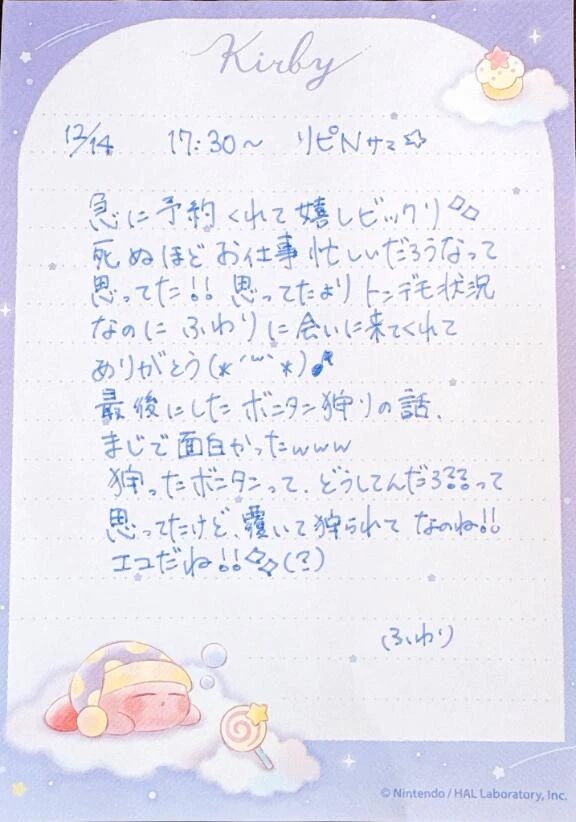 Kirby
12/14 17:30〜 リピNサマ☆
急に予約くれて嬉しビックリ◇◇
死ぬほどお仕事忙しいだろうなって
思ってた!! 思ってたよりトンデモ状況
なのに ふわりに会いに来てくれて
ありがとう(*´`*)♪
最後にしたボニタン狩りの話、
まじで面白かったwww
狩ったボニタンって、どうしてんだろ??って
思ってたけど、置いて狩られて なのね!!
エコだね!!◇◇(?)
ふわり
© Nintendo / HAL Laboratory, Inc.